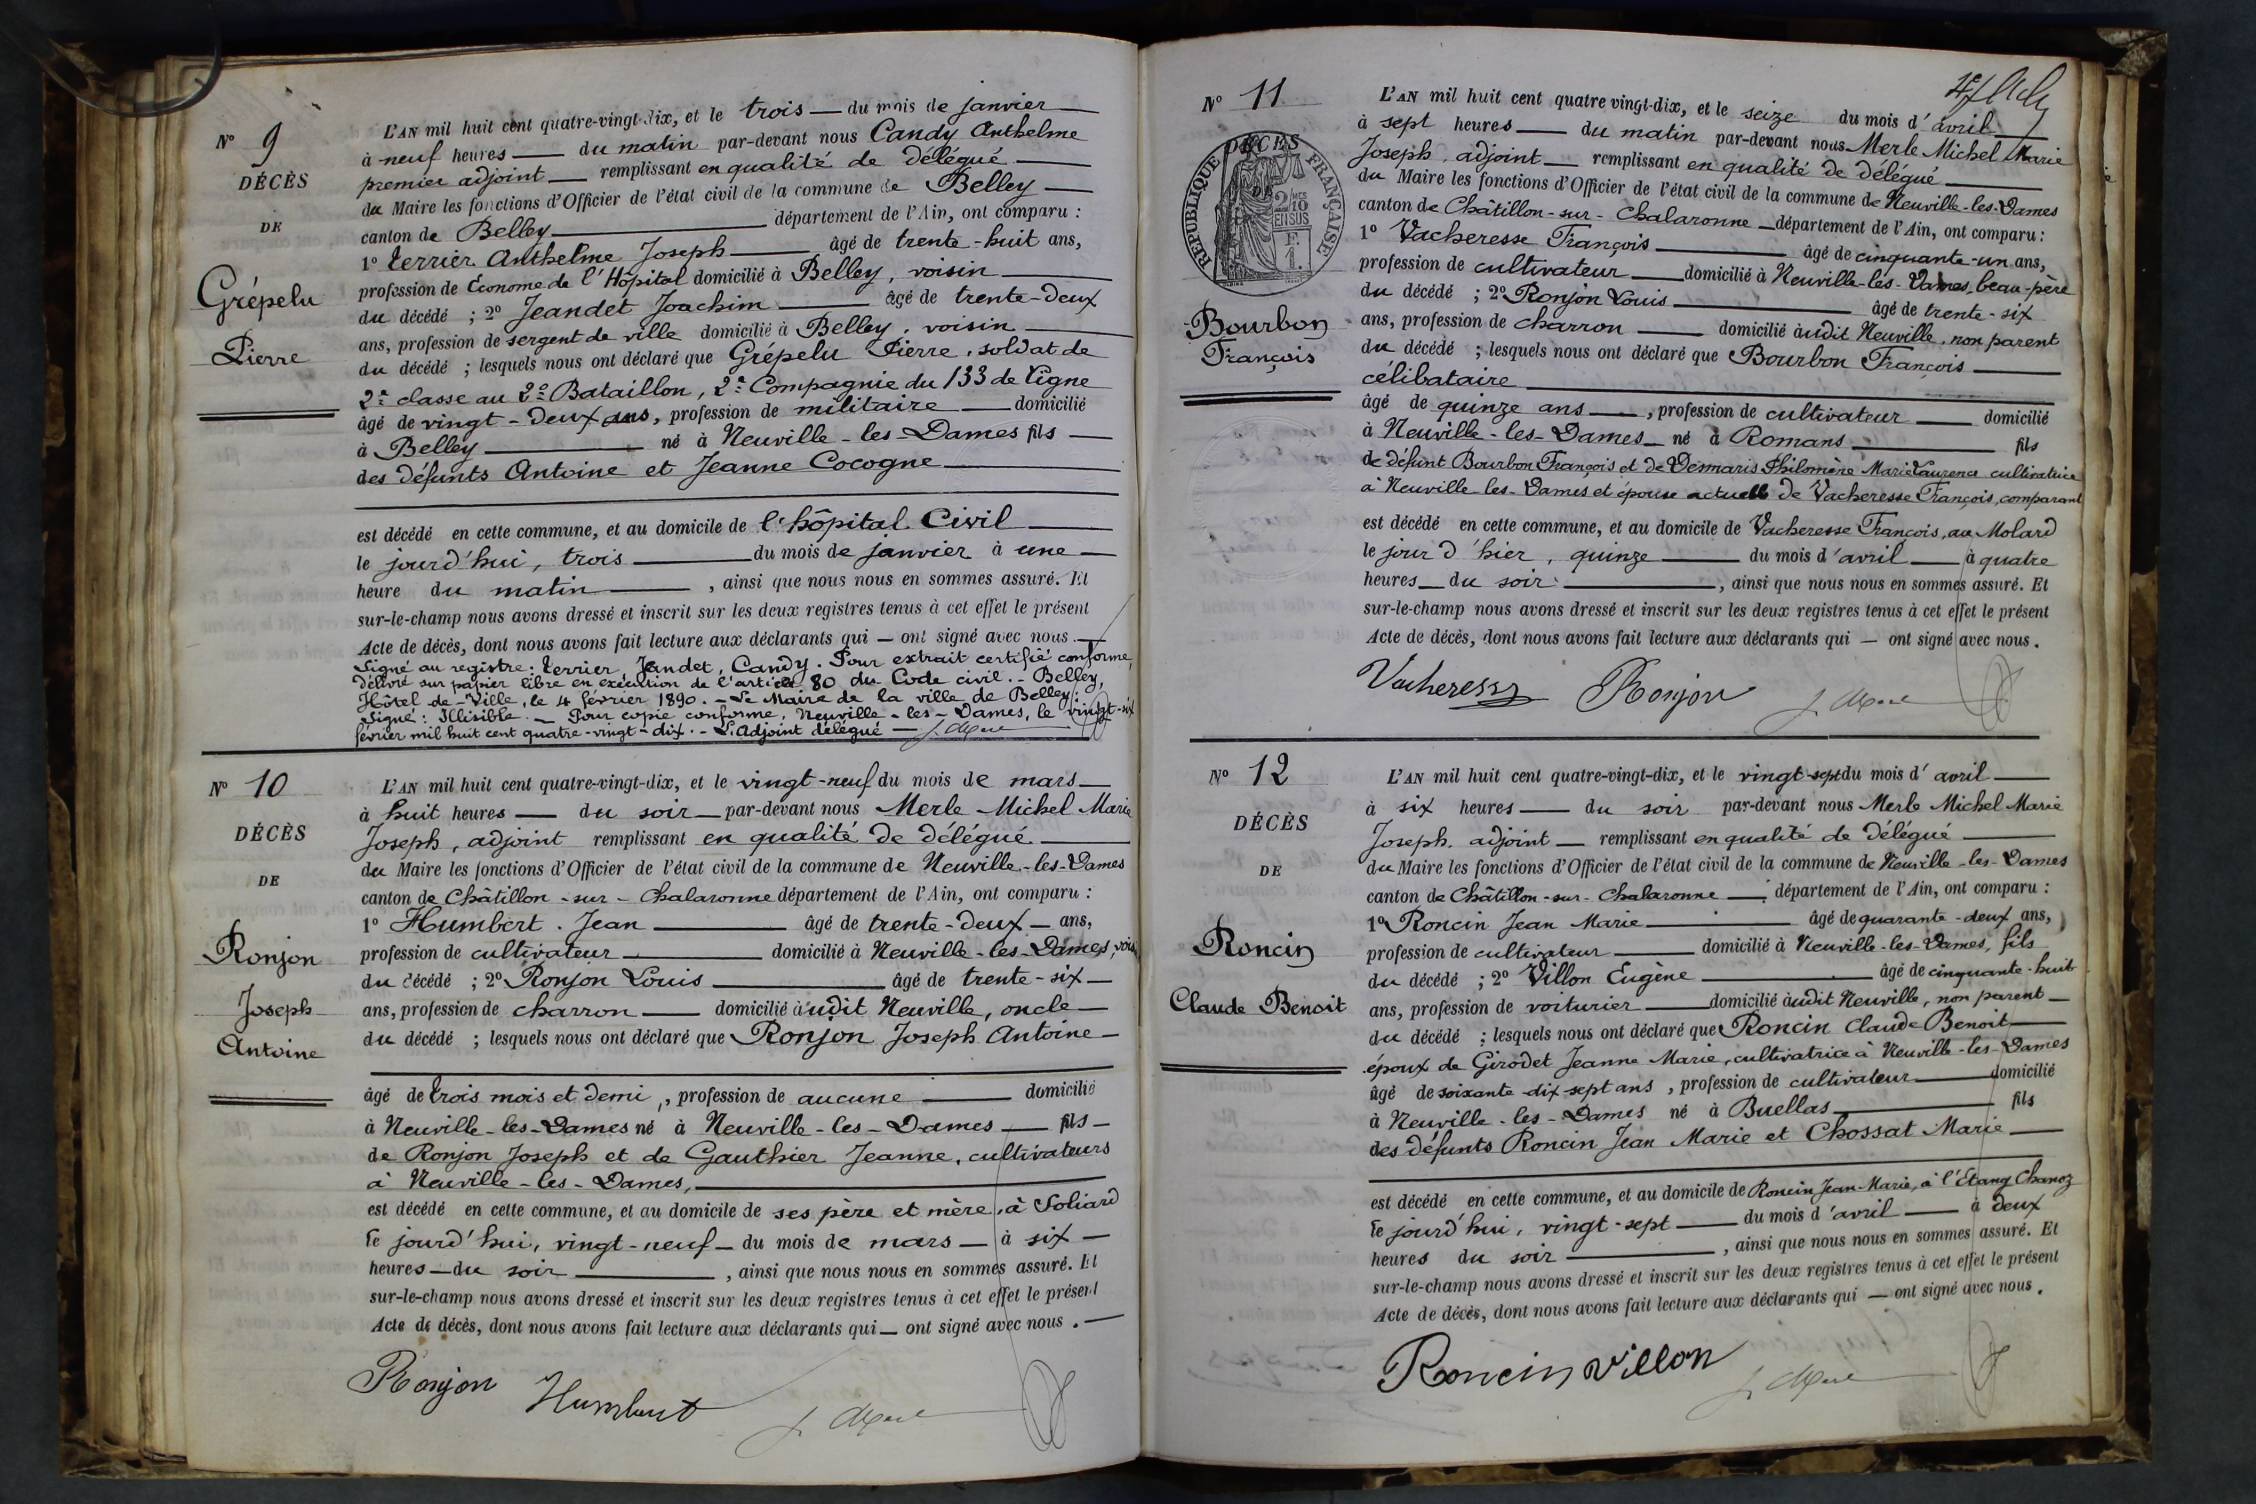 N° 9
DÉCÈS
DE
Grépelu
Pierre
L'AN mil huit cent quatre-vingt-dix, et le trois — du mois de janvier —
à neuf heures — du matin par-devant nous Candy Anthelme
premier adjoint — remplissant en qualité de délégué —
du Maire les fonctions d'Officier de l'état civil de la commune de Belley —
canton de Belley — département de l'Ain, ont comparu :
1° Terrier Anthelme Joseph — âgé de trente-huit ans,
profession de Econome de l'Hôpital domicilié à Belley, voisin —
du décédé ; 2° Jeandet Joachim — âgé de trente-deux
ans, profession de sergent de ville domicilié à Belley, voisin —
du décédé ; lesquels nous ont déclaré que Grépelu Pierre, soldat de
2e classe au 2e Bataillon, 2e Compagnie du 133 de Ligne
âgé de vingt-deux ans, profession de militaire — domicilié
à Belley — né à Neuville-les-Dames fils —
des défunts Antoine et Jeanne Cocogne —
est décédé en cette commune, et au domicile de l'hôpital Civil —
le jourd'hui, trois — du mois de janvier à une —
heure du matin — , ainsi que nous nous en sommes assuré. Et
sur-le-champ nous avons dressé et inscrit sur les deux registres tenus à cet effet le présent
Acte de décès, dont nous avons fait lecture aux déclarants qui — ont signé avec nous. —
Signé au registre: Terrier, Jandet, Candy. Pour extrait certifié conforme,
délivré sur papier libre en exécution de l'article 80 du Code civil. - Belley,
Hôtel-de-Ville, le 4 février 1890. - Le Maire de la ville de Belley:
Signé: Illisible. - Pour copie conforme, Neuville-les-Dames, le vingt-six
février mil huit cent quatre-vingt-dix. - L'Adjoint délégué —
N° 10
DÉCÈS
DE
Ronjon
Joseph
Antoine
L'AN mil huit cent quatre-vingt-dix, et le vingt-neuf du mois de mars —
à huit heures — du soir — par-devant nous Merle Michel Marie
Joseph, adjoint remplissant en qualité de délégué —
du Maire les fonctions d'Officier de l'état civil de la commune de Neuville-les-Dames
canton de Châtillon-sur-Chalaronne département de l'Ain, ont comparu :
1° Humbert Jean — âgé de trente-deux — ans,
profession de cultivateur — domicilié à Neuville-les-Dames, voisin
du décédé ; 2° Ronjon Louis — âgé de trente-six —
ans, profession de charron — domicilié audit Neuville, oncle —
du décédé ; lesquels nous ont déclaré que Ronjon Joseph Antoine —
âgé de trois mois et demi, profession de aucune — domicilié
à Neuville-les-Dames né à Neuville-les-Dames — fils —
de Ronjon Joseph et de Gauthier Jeanne, cultivateurs
à Neuville-les-Dames, —
est décédé en cette commune, et au domicile de ses père et mère, à Soliard
le jourd'hui, vingt-neuf — du mois de mars — à six —
heures — du soir — , ainsi que nous nous en sommes assuré. Et
sur-le-champ nous avons dressé et inscrit sur les deux registres tenus à cet effet le présent
Acte de décès, dont nous avons fait lecture aux déclarants qui — ont signé avec nous. —
Ronjon Humbert
N° 11
DÉCÈS
RÉPUBLIQUE FRANÇAISE
2/10
EN SUS
F.
1.
Bourbon
François
L'AN mil huit cent quatre vingt-dix, et le seize du mois d'avril —
à sept heures — du matin par-devant nous Merle Michel Marie
Joseph, adjoint — remplissant en qualité de délégué —
du Maire les fonctions d'Officier de l'état civil de la commune de Neuville-les-Dames
canton de Châtillon-sur-Chalaronne — département de l'Ain, ont comparu :
1° Vacheresse François — âgé de cinquante-un ans,
profession de cultivateur — domicilié à Neuville-les-Dames, beau-père
du décédé ; 2° Ronjon Louis — âgé de trente-six
ans, profession de charron — domicilié audit Neuville, non parent
du décédé ; lesquels nous ont déclaré que Bourbon François —
célibataire —
âgé de quinze ans — , profession de cultivateur — domicilié
à Neuville-les-Dames — né à Romans — fils
de défunt Bourbon François et de Desmaris Philomène Marie Laurence cultivatrice
à Neuville-les-Dames et épouse actuelle de Vacheresse François, comparant
est décédé en cette commune, et au domicile de Vacheresse François, au Molard
le jour d'hier, quinze — du mois d'avril — à quatre
heures — du soir — , ainsi que nous nous en sommes assuré. Et
sur-le-champ nous avons dressé et inscrit sur les deux registres tenus à cet effet le présent
Acte de décès, dont nous avons fait lecture aux déclarants qui — ont signé avec nous.
Vacheresse Ronjon
N° 12
DÉCÈS
DE
Roncin
Claude Benoit
L'AN mil huit cent quatre-vingt-dix, et le vingt-sept du mois d'avril —
à six heures — du soir par-devant nous Merle Michel Marie
Joseph, adjoint — remplissant en qualité de délégué —
du Maire les fonctions d'Officier de l'état civil de la commune de Neuville-les-Dames
canton de Châtillon-sur-Chalaronne — département de l'Ain, ont comparu :
1° Roncin Jean Marie — âgé de quarante-deux ans,
profession de cultivateur — domicilié à Neuville-les-Dames, fils
du décédé ; 2° Villon Eugène — âgé de cinquante-huit
ans, profession de voiturier — domicilié audit Neuville, non parent —
du décédé ; lesquels nous ont déclaré que Roncin Claude Benoit —
époux de Girodet Jeanne Marie, cultivatrice à Neuville-les-Dames
âgé de soixante-dix-sept ans, profession de cultivateur — domicilié
à Neuville-les-Dames né à Buellas — fils
des défunts Roncin Jean Marie et Chossat Marie —
est décédé en cette commune, et au domicile de Roncin Jean-Marie, à l'Etang Chanoz
le jourd'hui, vingt-sept — du mois d'avril — à deux
heures du soir — , ainsi que nous nous en sommes assuré. Et
sur-le-champ nous avons dressé et inscrit sur les deux registres tenus à cet effet le présent
Acte de décès, dont nous avons fait lecture aux déclarants qui — ont signé avec nous.
Roncin Villon